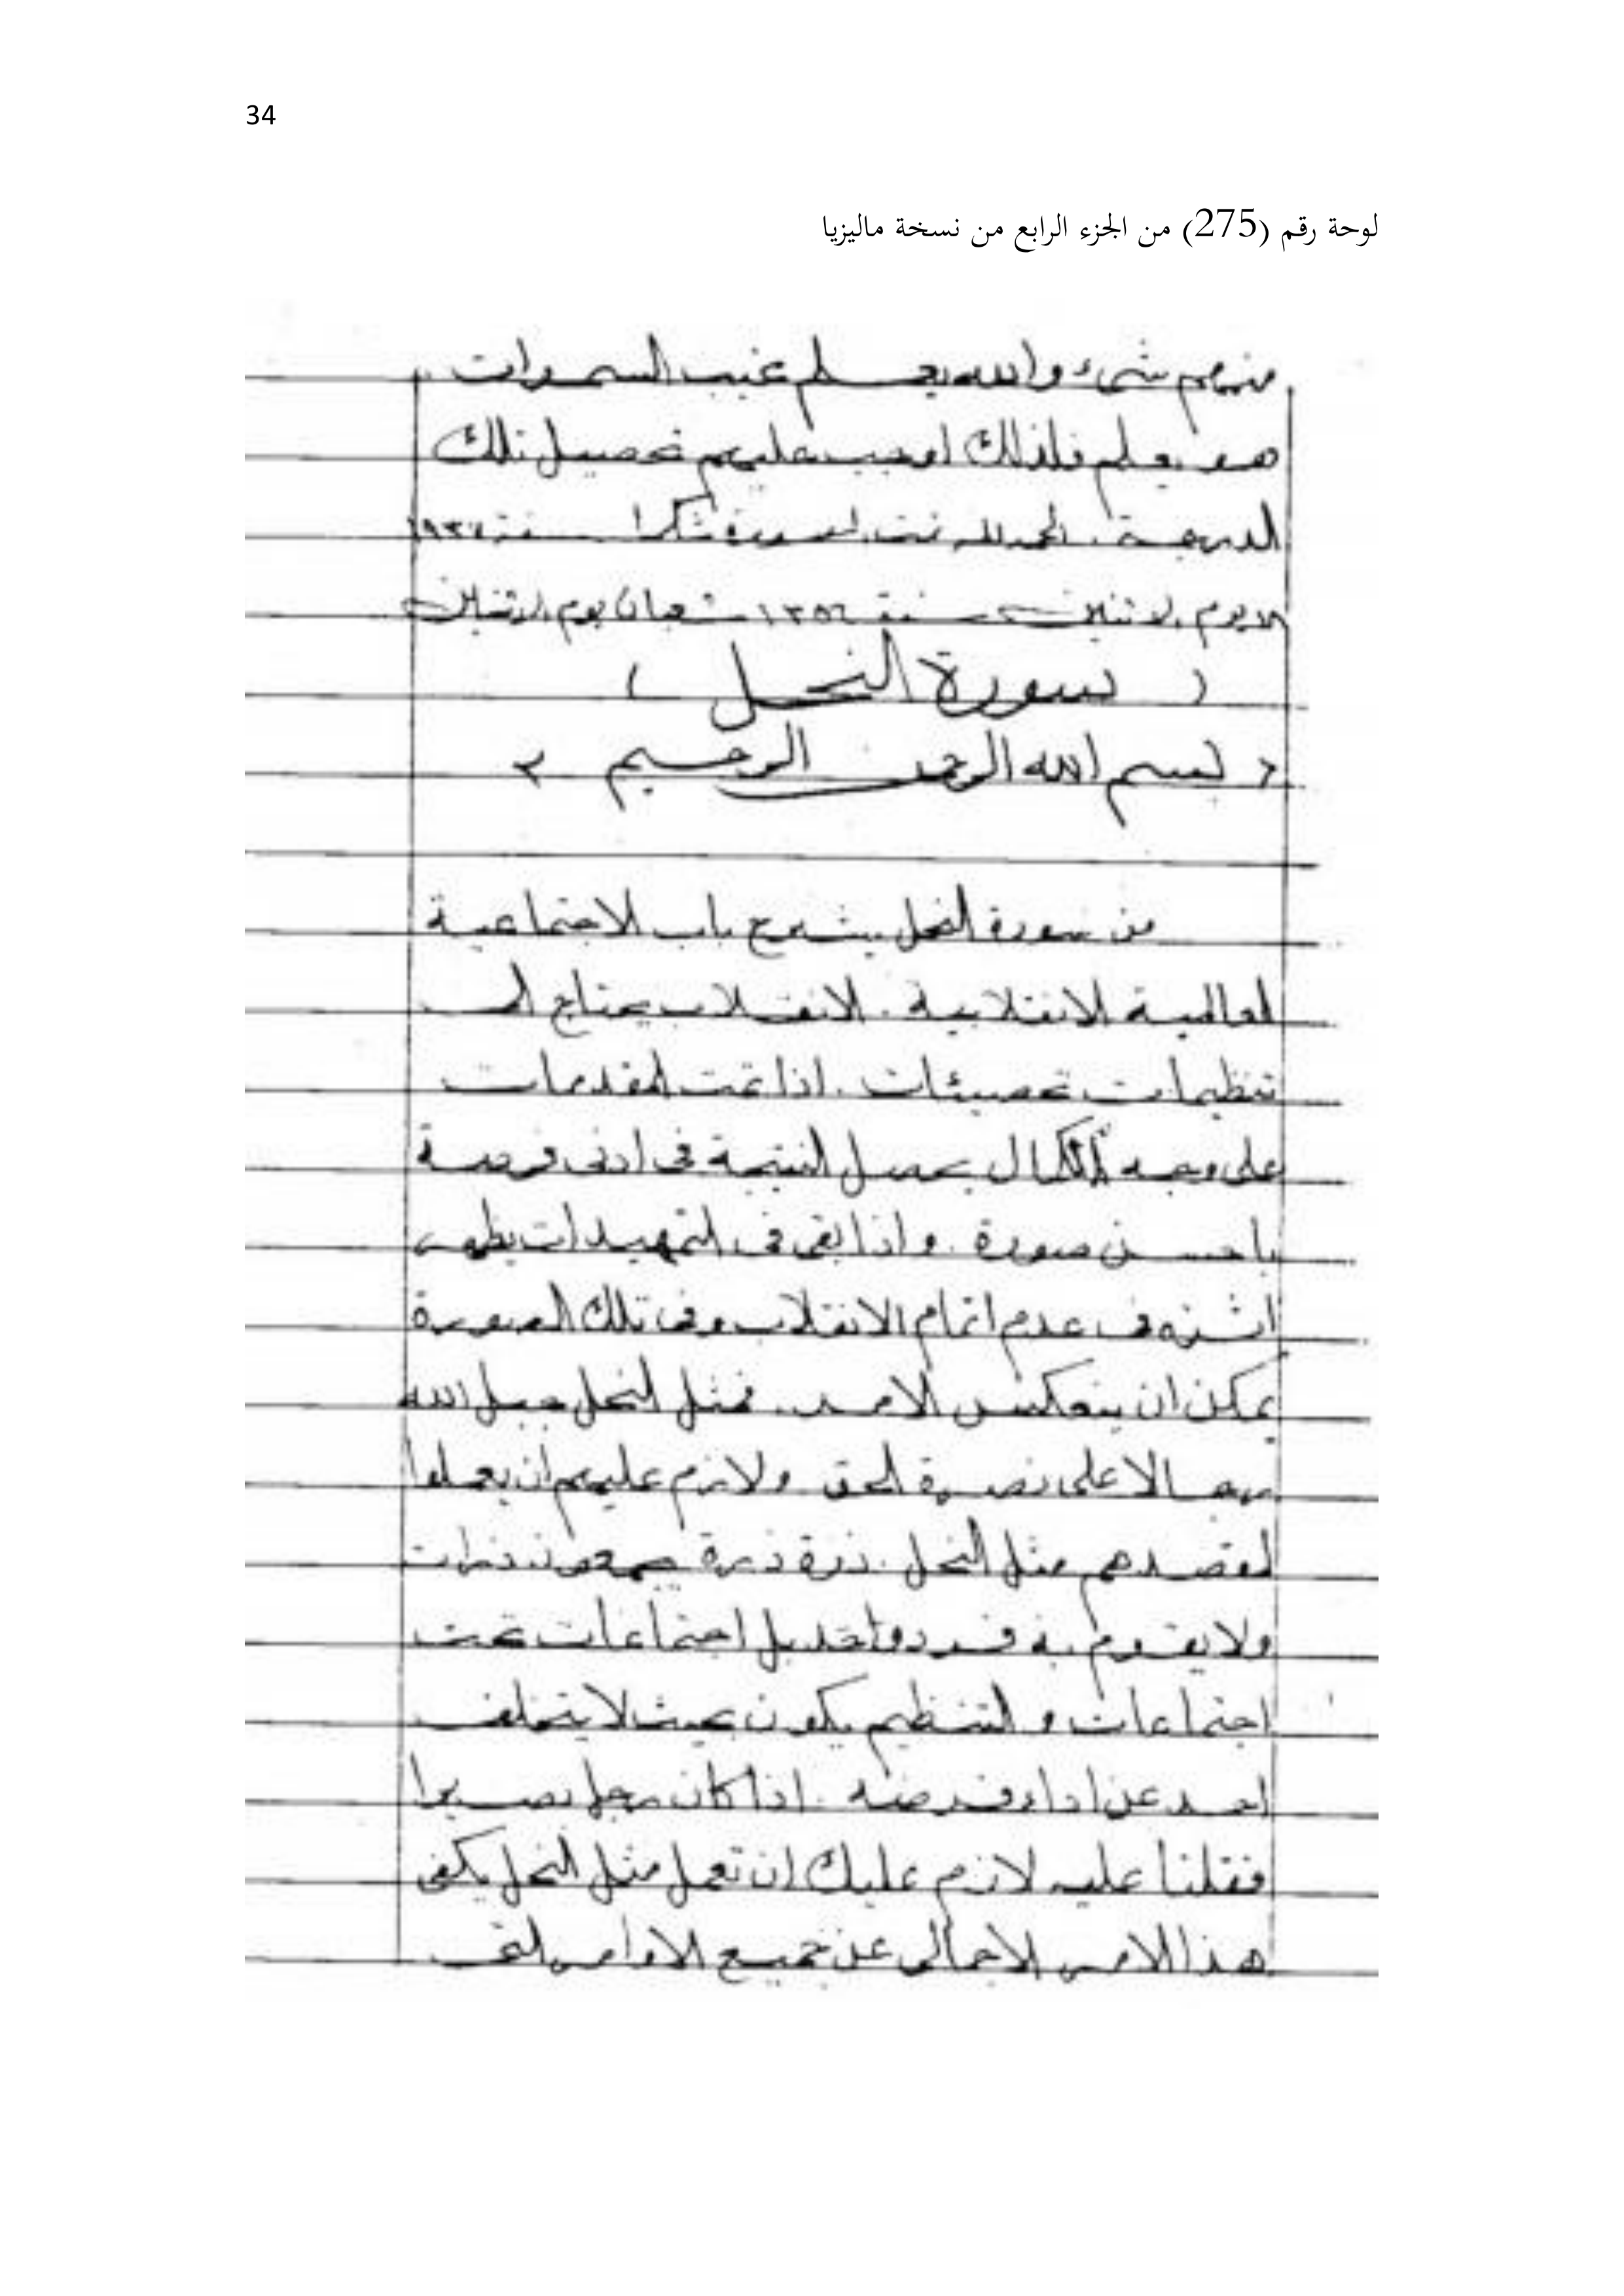 34
لوحة رقم (275) من الجزء الرابع من نسخة ماليزيا
منهم شىء والله يعلم غيب السموات
هو يعلم فلذلك اوجب عليهم تحصيل تلك
الدرجة. الحمد لله تمت السورة شكرا سنة ١٩٣٧
يوم الاثنين سنة ١٣٥٦ شعبان يوم الاثنين
( سورة النحل )
( بسم الله الرحمن الرحيم )
من سورة النحل يشرع باب الاجتماعية
العالمية الانقلابية. الانقلاب يحتاج الى
تنظيمات. اذا تمت المقدمات
على وجه الكمال يحصل النتيجة فى ادنى فرصة
باحسن صورة. واذا بقى فى التمهيدات يظهر
اثره فى عدم اتمام الانقلاب وفى تلك الصورة
يمكن ان ينعكس الامر. فمثل النحل جبل الله
رجالا على نصرة الحق ولازم عليهم ان يعملوا
لمقصدهم مثل النحل. ذرة ذرة يجمعون ذرات
ولا يقوم به فرد واحد بل اجتماعات تحت
اجتماعات والتنظيم يكون بحيث لا يتخلف
احد عن اداء فرضه. اذا كان رجل بصيرا
فقلنا عليه لازم عليك ان تعمل مثل النحل يكفى
هذا الامر الاجمالى عن جميع الاوامر التى